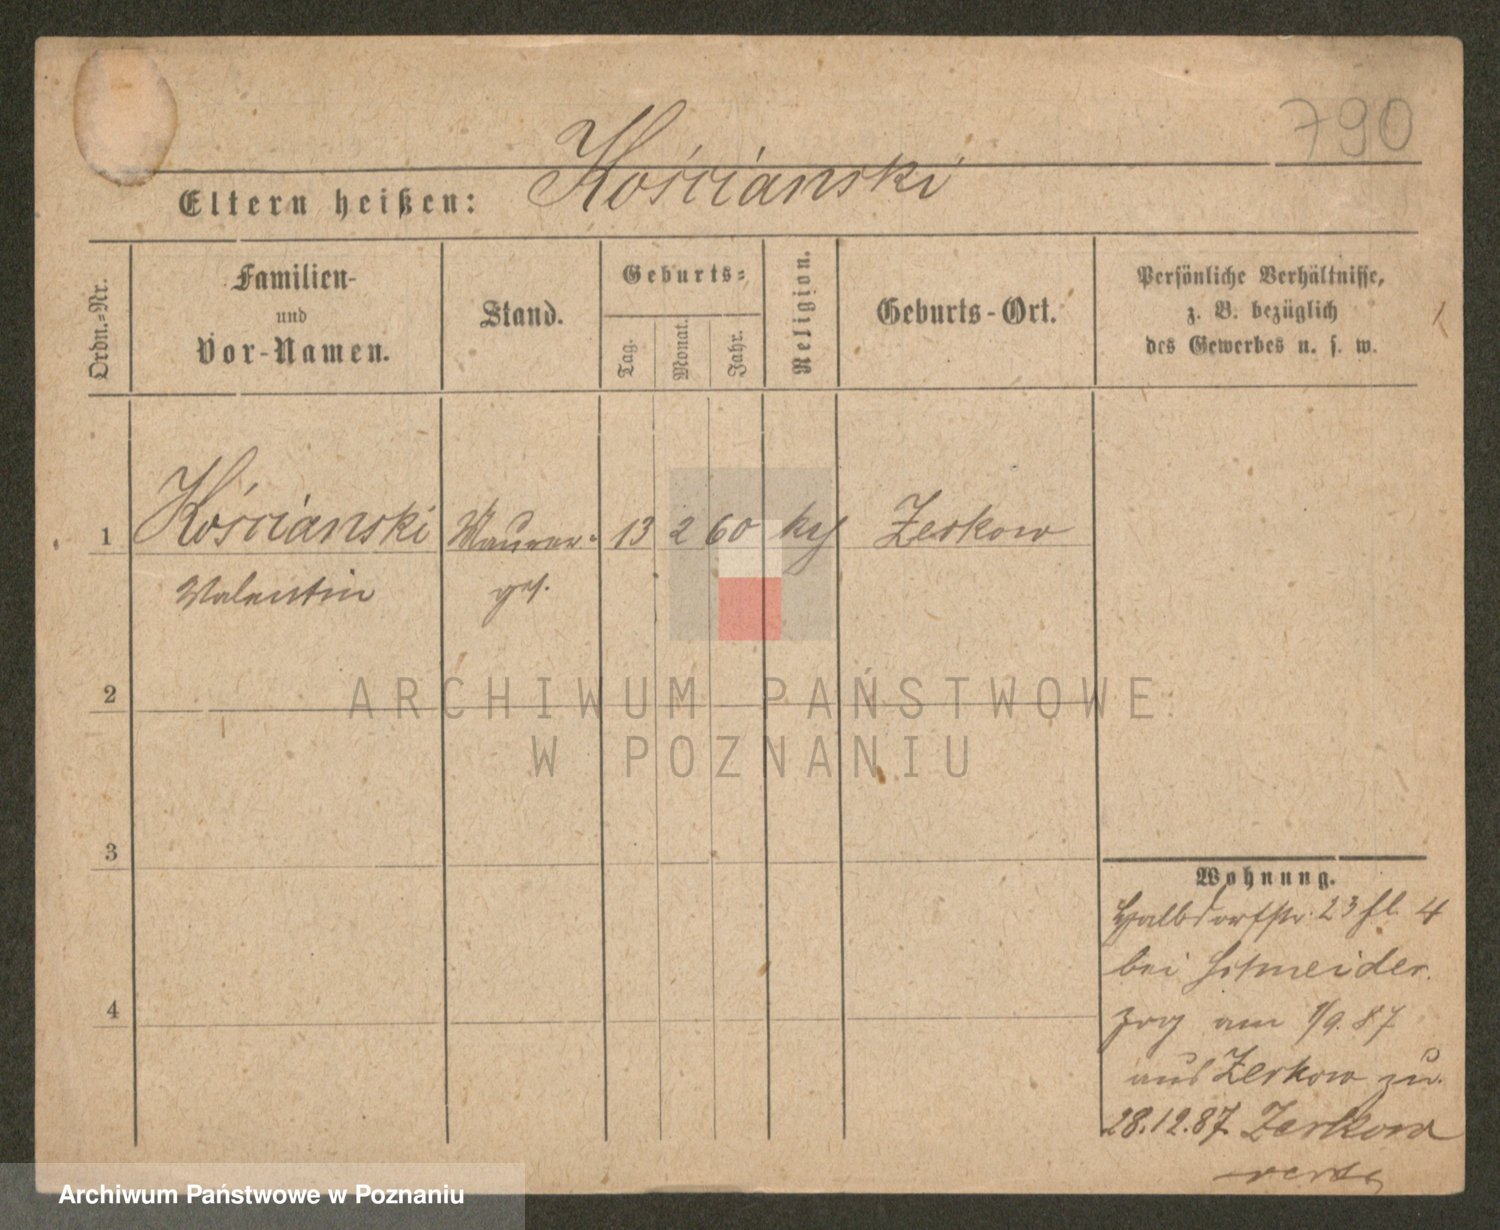 790
Kościanski
Eltern heißen:
Ordn.=Nr.
Familien-
und
Vor-Namen.
Stand.
Geburts=
Tag.
Monat.
Jahr.
Religion.
Geburts-Ort.
Persönliche Verhältnisse,
z. B. bezüglich
des Gewerbes u. s. w.
1 Kościanski Maurer- 13 2 60 Zerkow
Valentin ges.
2
ARCHIWUM PAŃSTWOWE
W POZNANIU
3
4
Wohnung.
Halbdorfstr. 23 4
bei Schneider.
zog am 1/9. 87
aus Zerkow zu.
28.12.87. Zerkow
Archiwum Państwowe w Poznaniu